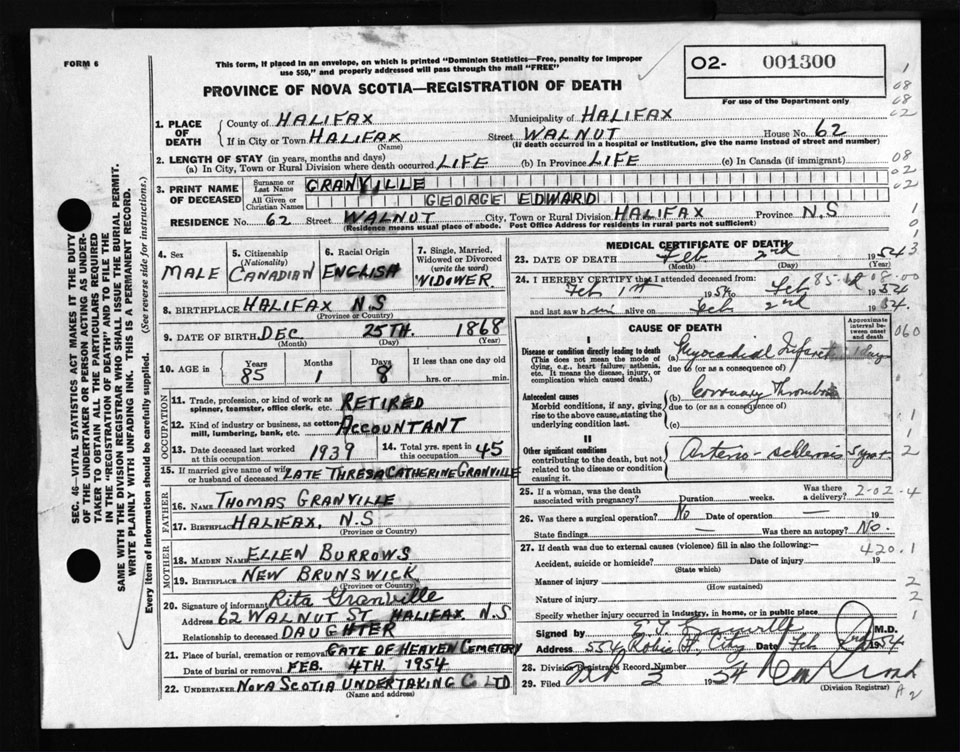 FORM 6
This form, if placed in an envelope, on which is printed "Dominion Statistics—Free, penalty for improper
use $50," and properly addressed will pass through the mail "FREE"
PROVINCE OF NOVA SCOTIA—REGISTRATION OF DEATH
O2- 001300
For use of the Department only
1. PLACE OF DEATH
County of HALIFAX Municipality of HALIFAX
If in City or Town HALIFAX Street WALNUT House No. 62
(Name) (If death occurred in a hospital or institution, give the name instead of street and number)
2. LENGTH OF STAY (in years, months and days)
(a) In City, Town or Rural Division where death occurred LIFE (b) In Province LIFE (c) In Canada (if immigrant)
3. PRINT NAME OF DECEASED
Surname or Last Name GRANVILLE
All Given or Christian Names GEORGE EDWARD
RESIDENCE No. 62 Street WALNUT City, Town or Rural Division HALIFAX Province N.S
(Residence means usual place of abode. Post Office Address for residents in rural parts not sufficient)
4. Sex MALE
5. Citizenship (Nationality) CANADIAN
6. Racial Origin ENGLISH
7. Single, Married, Widowed or Divorced (write the word) WIDOWER.
8. BIRTHPLACE HALIFAX N.S
(Province or Country)
9. DATE OF BIRTH DEC 25TH. 1868
(Month) (Day) (Year)
10. AGE in Years 85 Months 1 Days 8 If less than one day old hrs. or min.
OCCUPATION
11. Trade, profession, or kind of work as spinner, teamster, office clerk, etc. RETIRED
12. Kind of industry or business, as cotton mill, lumbering, bank, etc. ACCOUNTANT
13. Date deceased last worked at this occupation 1939
14. Total yrs. spent in this occupation 45
15. If married give name of wife or husband of deceased LATE THRESA CATHERINE GRANVILLE
FATHER
16. NAME THOMAS GRANVILLE
17. BIRTHPLACE HALIFAX, N.S
(Province or Country)
MOTHER
18. MAIDEN NAME ELLEN BURROWS
19. BIRTHPLACE NEW BRUNSWICK
(Province or Country)
20. Signature of informant Rita Granville
Address 62 WALNUT ST HALIFAX N.S
Relationship to deceased DAUGHTER
21. Place of burial, cremation or removal GATE OF HEAVEN CEMETERY
Date of burial or removal FEB. 4TH. 1954
22. UNDERTAKER NOVA SCOTIA UNDERTAKING CO LTD
(Name and address)
MEDICAL CERTIFICATE OF DEATH
23. DATE OF DEATH Feb 2nd 1954
(Month) (Day) (Year)
24. I HEREBY CERTIFY that I attended deceased from:
Feb 1st 1954 to Feb 1954
and last saw him alive on Feb. 2nd 1954.
CAUSE OF DEATH
Approximate interval between onset and death
I
Disease or condition directly leading to death
(This does not mean the mode of dying, e.g., heart failure, asthenia, etc. It means the disease, injury, or complication which caused death.)
(a) Myocardial Infarct 1 day
due to (or as a consequence of)
Antecedent causes
Morbid conditions, if any, giving rise to the above cause, stating the underlying condition last.
(b) Coronary Thrombosis
due to (or as a consequence of)
(c)
II
Other significant conditions
contributing to the death, but not related to the disease or condition causing it.
Arterio-sclerosis 5 years +
25. If a woman, was the death associated with pregnancy? Duration weeks. Was there a delivery?
2-02-4
26. Was there a surgical operation? No Date of operation — 19
State findings — Was there an autopsy? No.
27. If death was due to external causes (violence) fill in also the following:— 420.1
Accident, suicide or homicide? Date of injury 19
(State which)
Manner of injury
(How sustained)
Nature of injury
Specify whether injury occurred in industry, in home, or in public place
Signed by E. Granville M.D.
Address 554 Robie St. City Date Feb 1954
28. Division Registrar's Record Number
29. Filed Feb 3 1954
(Division Registrar)
SEC. 46—VITAL STATISTICS ACT MAKES IT THE DUTY
OF THE UNDERTAKER OR PERSON ACTING AS UNDER-
TAKER TO OBTAIN ALL THE PARTICULARS REQUIRED
IN THE "REGISTRATION OF DEATH" AND TO FILE THE
SAME WITH THE DIVISION REGISTRAR WHO SHALL ISSUE THE BURIAL PERMIT.
WRITE PLAINLY WITH UNFADING INK. THIS IS A PERMANENT RECORD.
Every item of information should be carefully supplied. (See reverse side for instructions.)